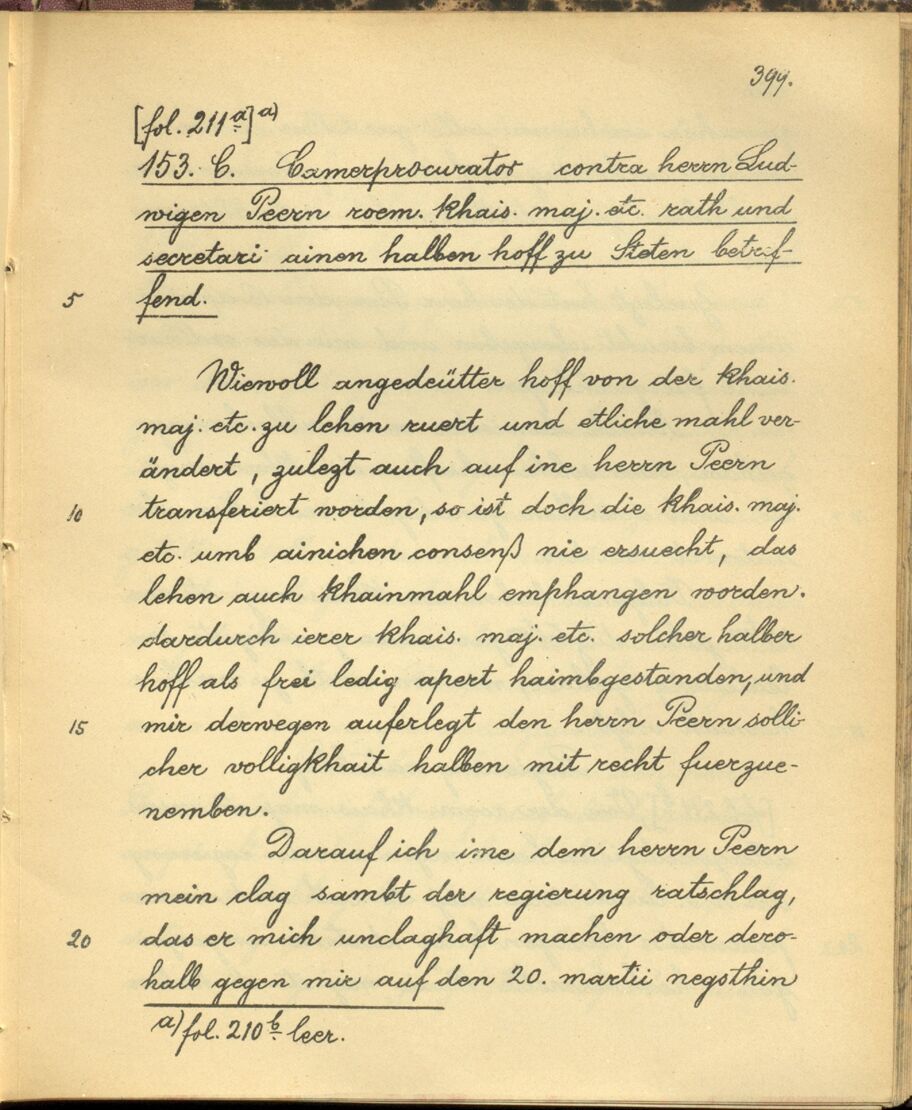 399.
[fol. 211a]a)
153. C. Camerprocurator contra herrn Lud-
wigen Peern roem. khais. maj. etc. rath und
secretari ainen halben hoff zu Steten betref-
5 fend.
Wiewoll angedeütter hoff von der khais.
maj. etc. zu lehen ruert und etliche mahl ver-
ändert, zulezt auch auf ine herrn Peern
10 transferiert worden, so ist doch die khais. maj.
etc. umb ainichen consenß nie ersuecht, das
lehen auch khainmahl emphangen worden.
dardurch ierer khais. maj. etc. solcher halber
hoff als frei ledig apert haimbgestanden, und
15 mir derwegen auferlegt den herrn Peern solli-
cher volligkhait halben mit recht fuerzue-
nemben.
Darauf ich ime dem herrn Peern
mein clag sambt der regierung ratschlag,
20 das er mich unclaghaft machen oder dero-
halb gegen mir auf den 20. martii negsthin
a) fol. 210b leer.